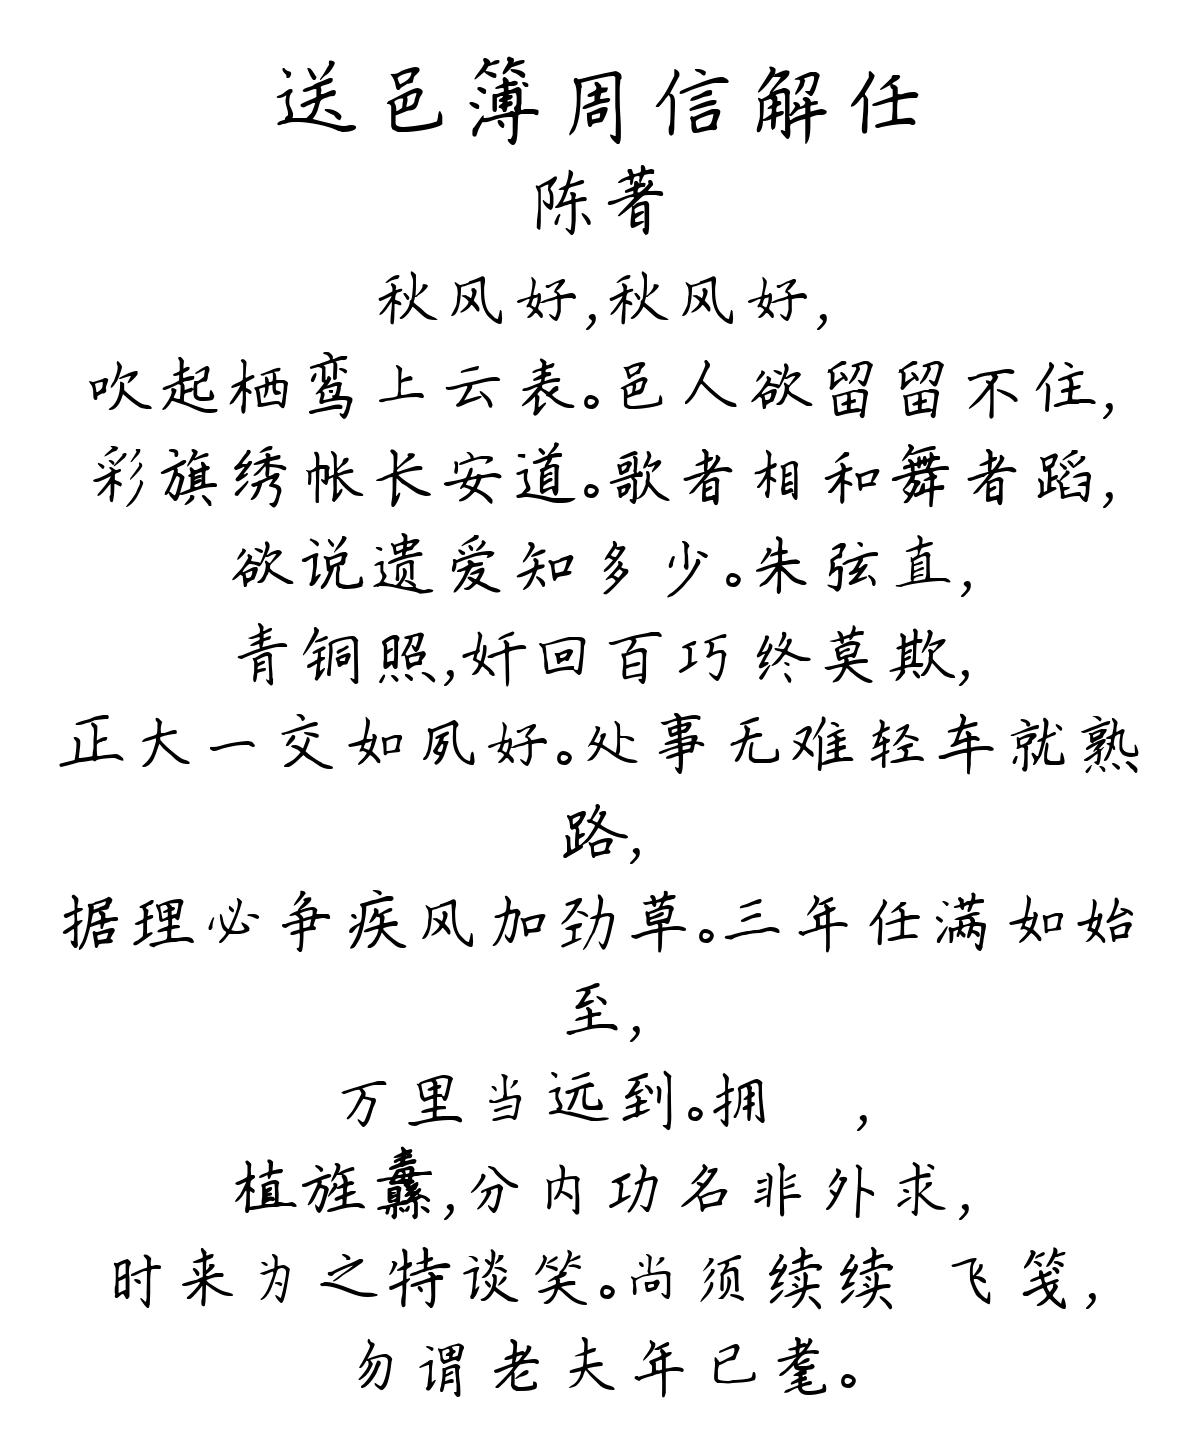 送邑簿周信解任
陈著
秋风好,秋风好,
吹起栖鸾上云表。邑人欲留留不住,
彩旗绣帐长安道。歌者相和舞者蹈,
欲说遗爱知多少。朱弦直,
青铜照,奸回百巧终莫欺,
正大一交如夙好。处事无难轻车就熟
路,
据理必争疾风加劲草。三年任满如始
至,
万里当远到。拥　,
植旌纛,分内功名非外求,
时来为之特谈笑。尚须续续　飞笺,
勿谓老夫年已耄。